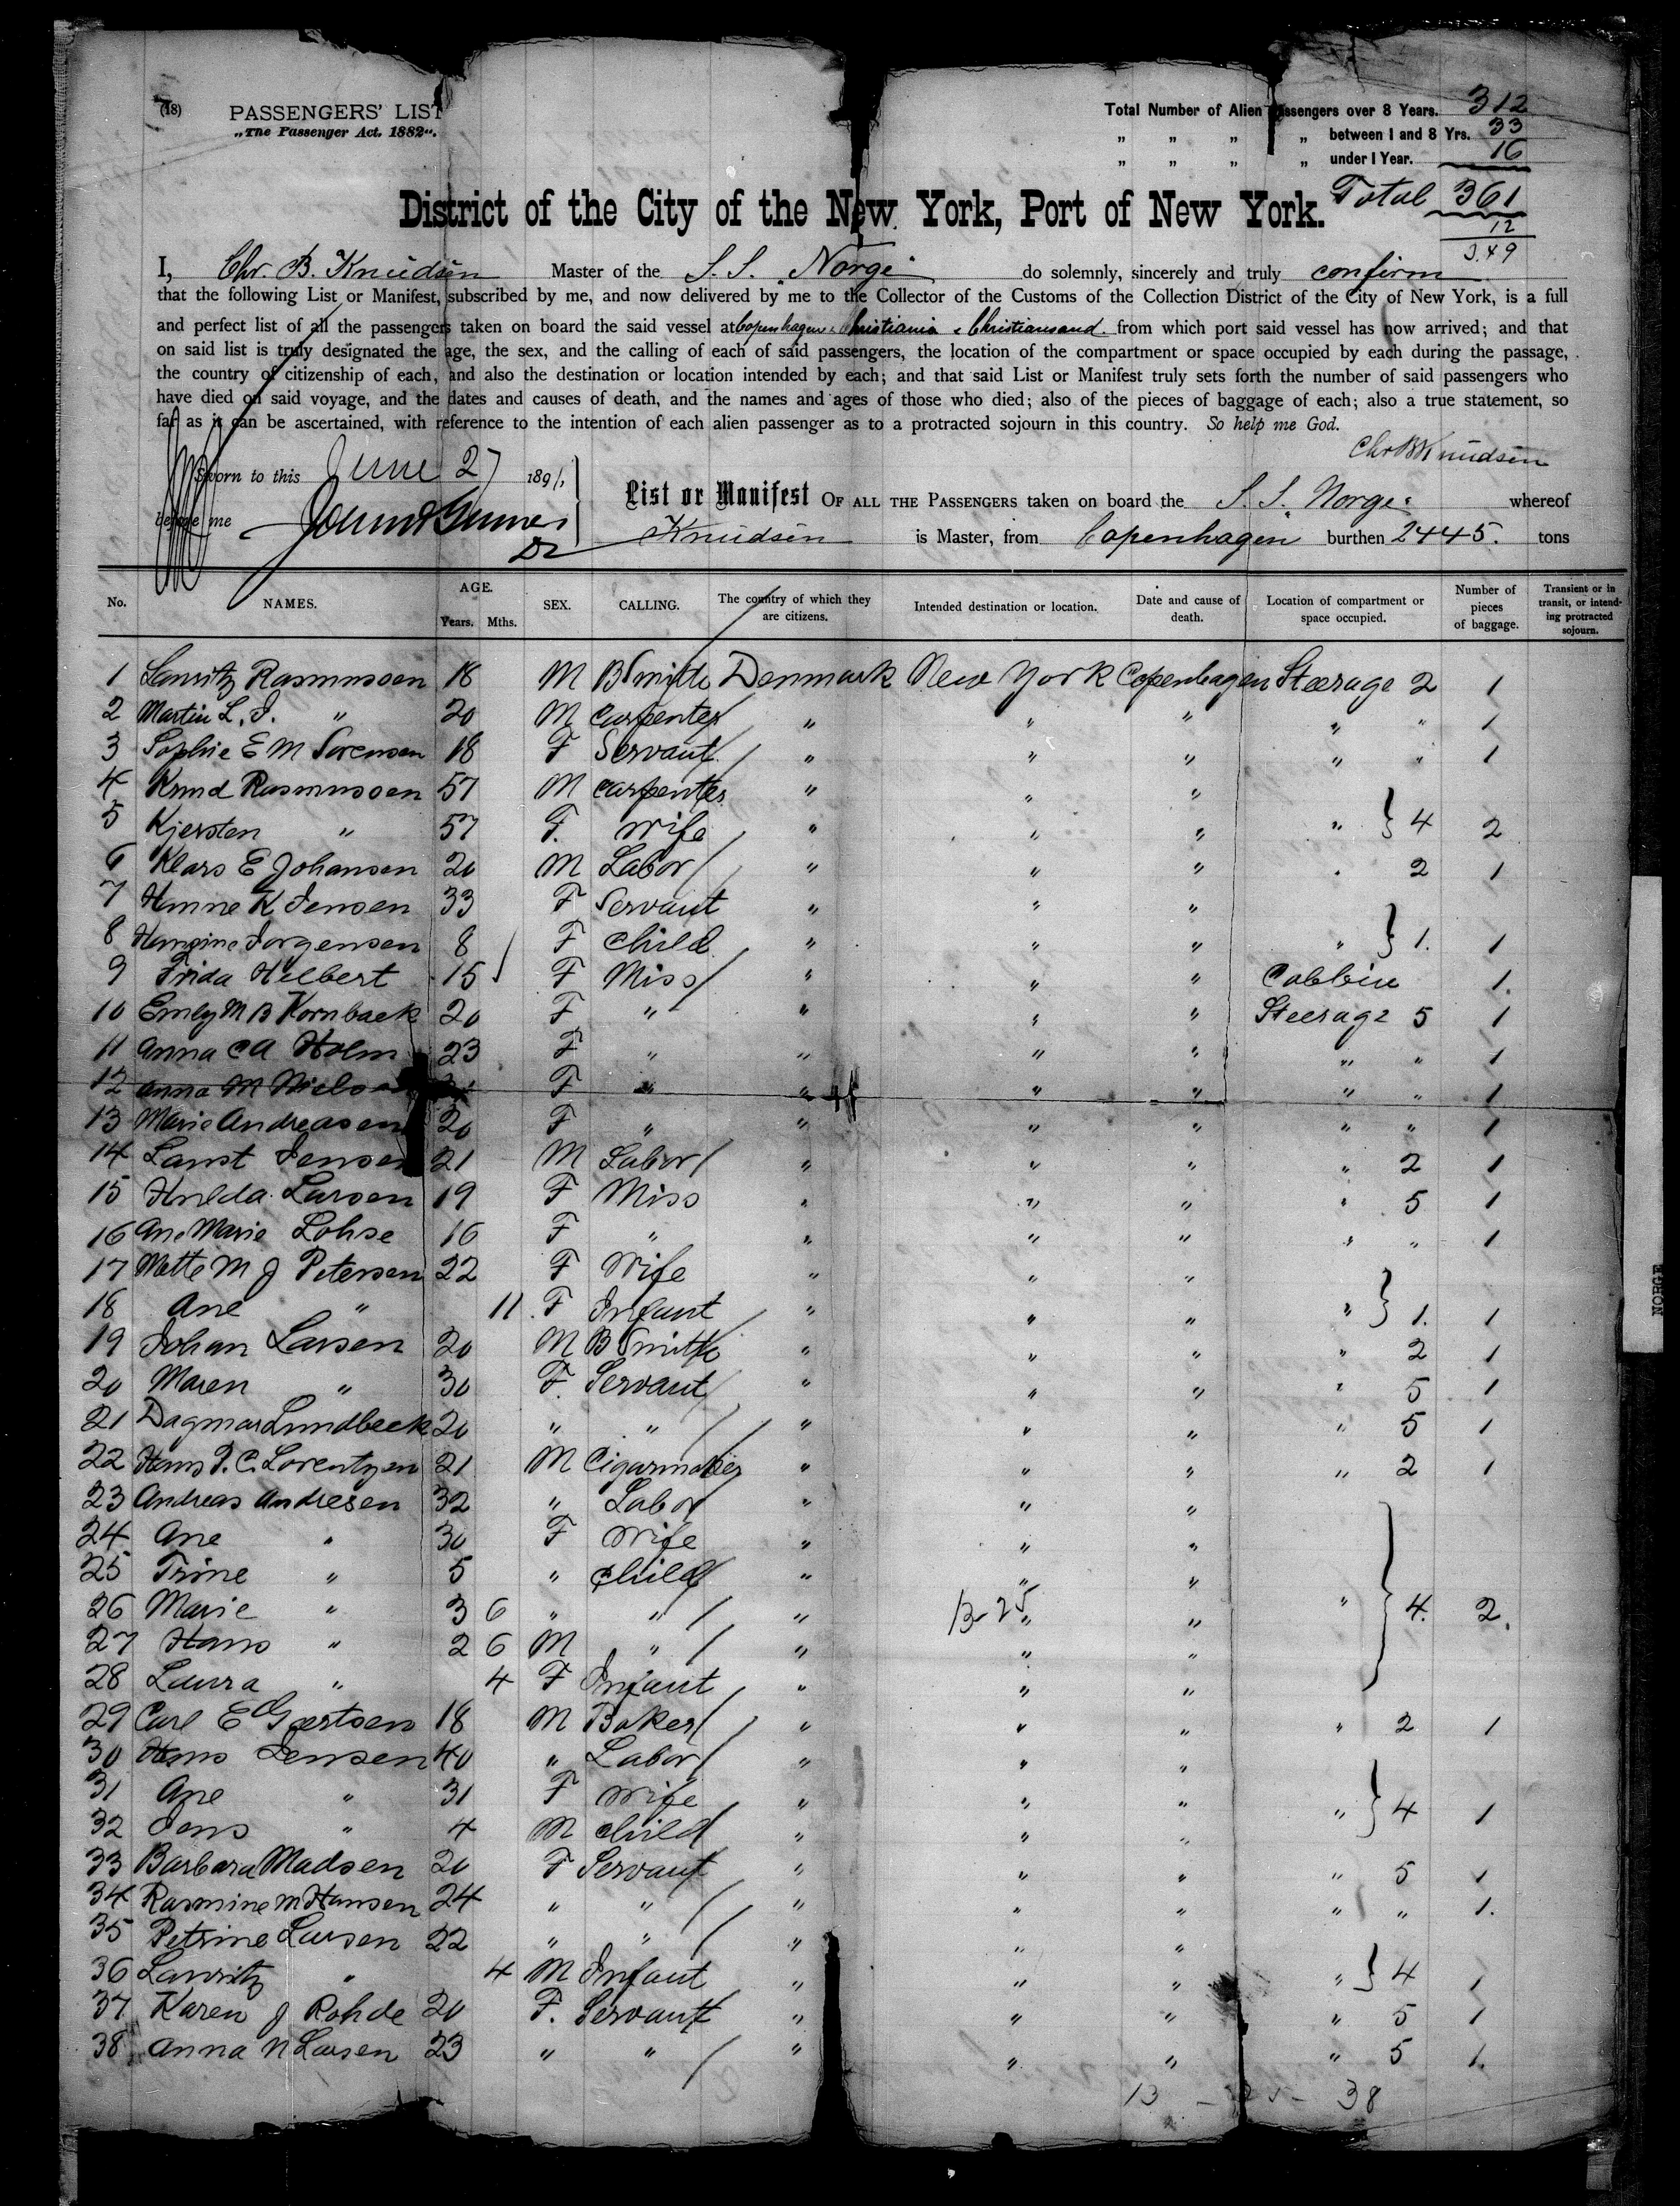 (18) PASSENGERS' LIST
„The Passenger Act. 1882“.
Total Number of Alien Passengers over 8 Years. 312
„ „ „ „ between 1 and 8 Yrs. 33
„ „ „ „ under 1 Year. 16
Total 361
12
349
District of the City of the New York, Port of New York.
I, Chr. B. Knudsen Master of the S. S. „Norge“ do solemnly, sincerely and truly confirm
that the following List or Manifest, subscribed by me, and now delivered by me to the Collector of the Customs of the Collection District of the City of New York, is a full
and perfect list of all the passengers taken on board the said vessel at Copenhagen, Christiania & Christiansand. from which port said vessel has now arrived; and that
on said list is truly designated the age, the sex, and the calling of each of said passengers, the location of the compartment or space occupied by each during the passage,
the country of citizenship of each, and also the destination or location intended by each; and that said List or Manifest truly sets forth the number of said passengers who
have died on said voyage, and the dates and causes of death, and the names and ages of those who died; also of the pieces of baggage of each; also a true statement, so
far as it can be ascertained, with reference to the intention of each alien passenger as to a protracted sojourn in this country. So help me God.
Chr B Knudsen
Sworn to this June 27 1891,
before me
List or Manifest OF ALL THE PASSENGERS taken on board the S. S. „Norge“ whereof
Knudsen is Master, from Copenhagen burthen 2445. tons
No. NAMES. AGE. Years. Mths. SEX. CALLING. The country of which they are citizens. Intended destination or location. Date and cause of death. Location of compartment or space occupied. Number of pieces of baggage. Transient or in transit, or intending protracted sojourn.
1 Lauritz Rasmussen 18 M BSmith Denmark New York Copenhagen Steerage 2 1
2 Martin L. J. „ 20 M carpenter „ „ „ „ „ 1
3 Sophie E M Sorensen 18 F Servant „ „ „ „ „ 1
4 Knud Rasmussen 57 M carpenter „ „ „
5 Kjersten „ 57 F. Wife „ „ „ „ } 4 2
6 Klars E Johansen 20 M Labor „ „ „ „ 2 1
7 Hanne K Jensen 33 F Servant „ „ „
8 Hansine Jorgensen 8 F child „ „ „ „ } 1. 1
9 Frida Hilbert 15 F Miss „ „ „ Cabbin 1.
10 Emly M B Kornbaek 20 F „ „ „ „ Steerage 5 1
11 Anna C A Holm 23 F „ „ „ „ „ „ 1
12 Anna M Nielsen F „ „ „ „ „ „ 1
13 Marie Andreasen 20 F „ „ „ „ „ „ 1
14 Laust Jensen 21 M Labor „ „ „ „ 2 1
15 Hulda Larsen 19 F Miss „ „ „ „ 5 1
16 Ane Marie Lohse 16 F „ „ „ „ „ „ 1
17 Mette M J Petersen 22 F Wife „ „ „
18 Ane „ 11. F Infant „ „ „ „ } 1. 1
19 Johan Larsen 20 M B Smith „ „ „ „ 2 1
20 Maren „ 30 F. Servant „ „ „ „ 5 1
21 Dagmar Lundbeck 20 „ „ „ „ „ „ 5 1
22 Hans P. C. Lorentzen 21 M Cigarmaker „ „ „ „ 2 1
23 Andreas Andresen 32 „ Labor „ „ „
24 Ane „ 30 F Wife „ „ „
25 Trine „ 5 „ child „ „ „
26 Marie „ 3 6 „ „ „ 13-25 „ „ „ } 4. 2.
27 Hans „ 2 6 M „ „ „ „
28 Laura „ 4 F Infant „ „ „
29 Carl E Gjertsen 18 M Baker „ „ „ „ 2 1
30 Hans Jensen 40 „ Labor „ „ „
31 Ane „ 31 F Wife „ „ „ „ } 4 1
32 Jens „ 4 M child „ „ „
33 Barbara Madsen 20 F Servant „ „ „ „ 5 1
34 Rasmine M Hansen 24 „ „ „ „ „ „ „ 1.
35 Petrine Larsen 22 „ „ „ „ „
36 Lauritz „ 4 M Infant „ „ „ „ } 4 1
37 Karen J Rohde 20 F. Servant „ „ „ „ 5 1
38 Anna N Larsen 23 „ „ „ „ „ „ 5 1.
13 - 25 - 38
NORGE